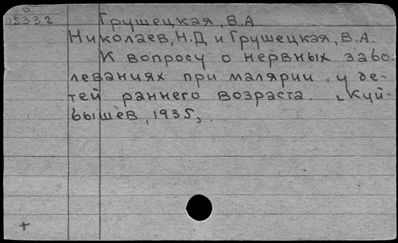 15332 Грушецкая, В.А
Николаев, Н.Д и Грушецкая, В.А.
К вопросу о нервных забо-
леваниях при малярии у де-
тей раннего возраста. [Куй-
бышев, 1935,.
+